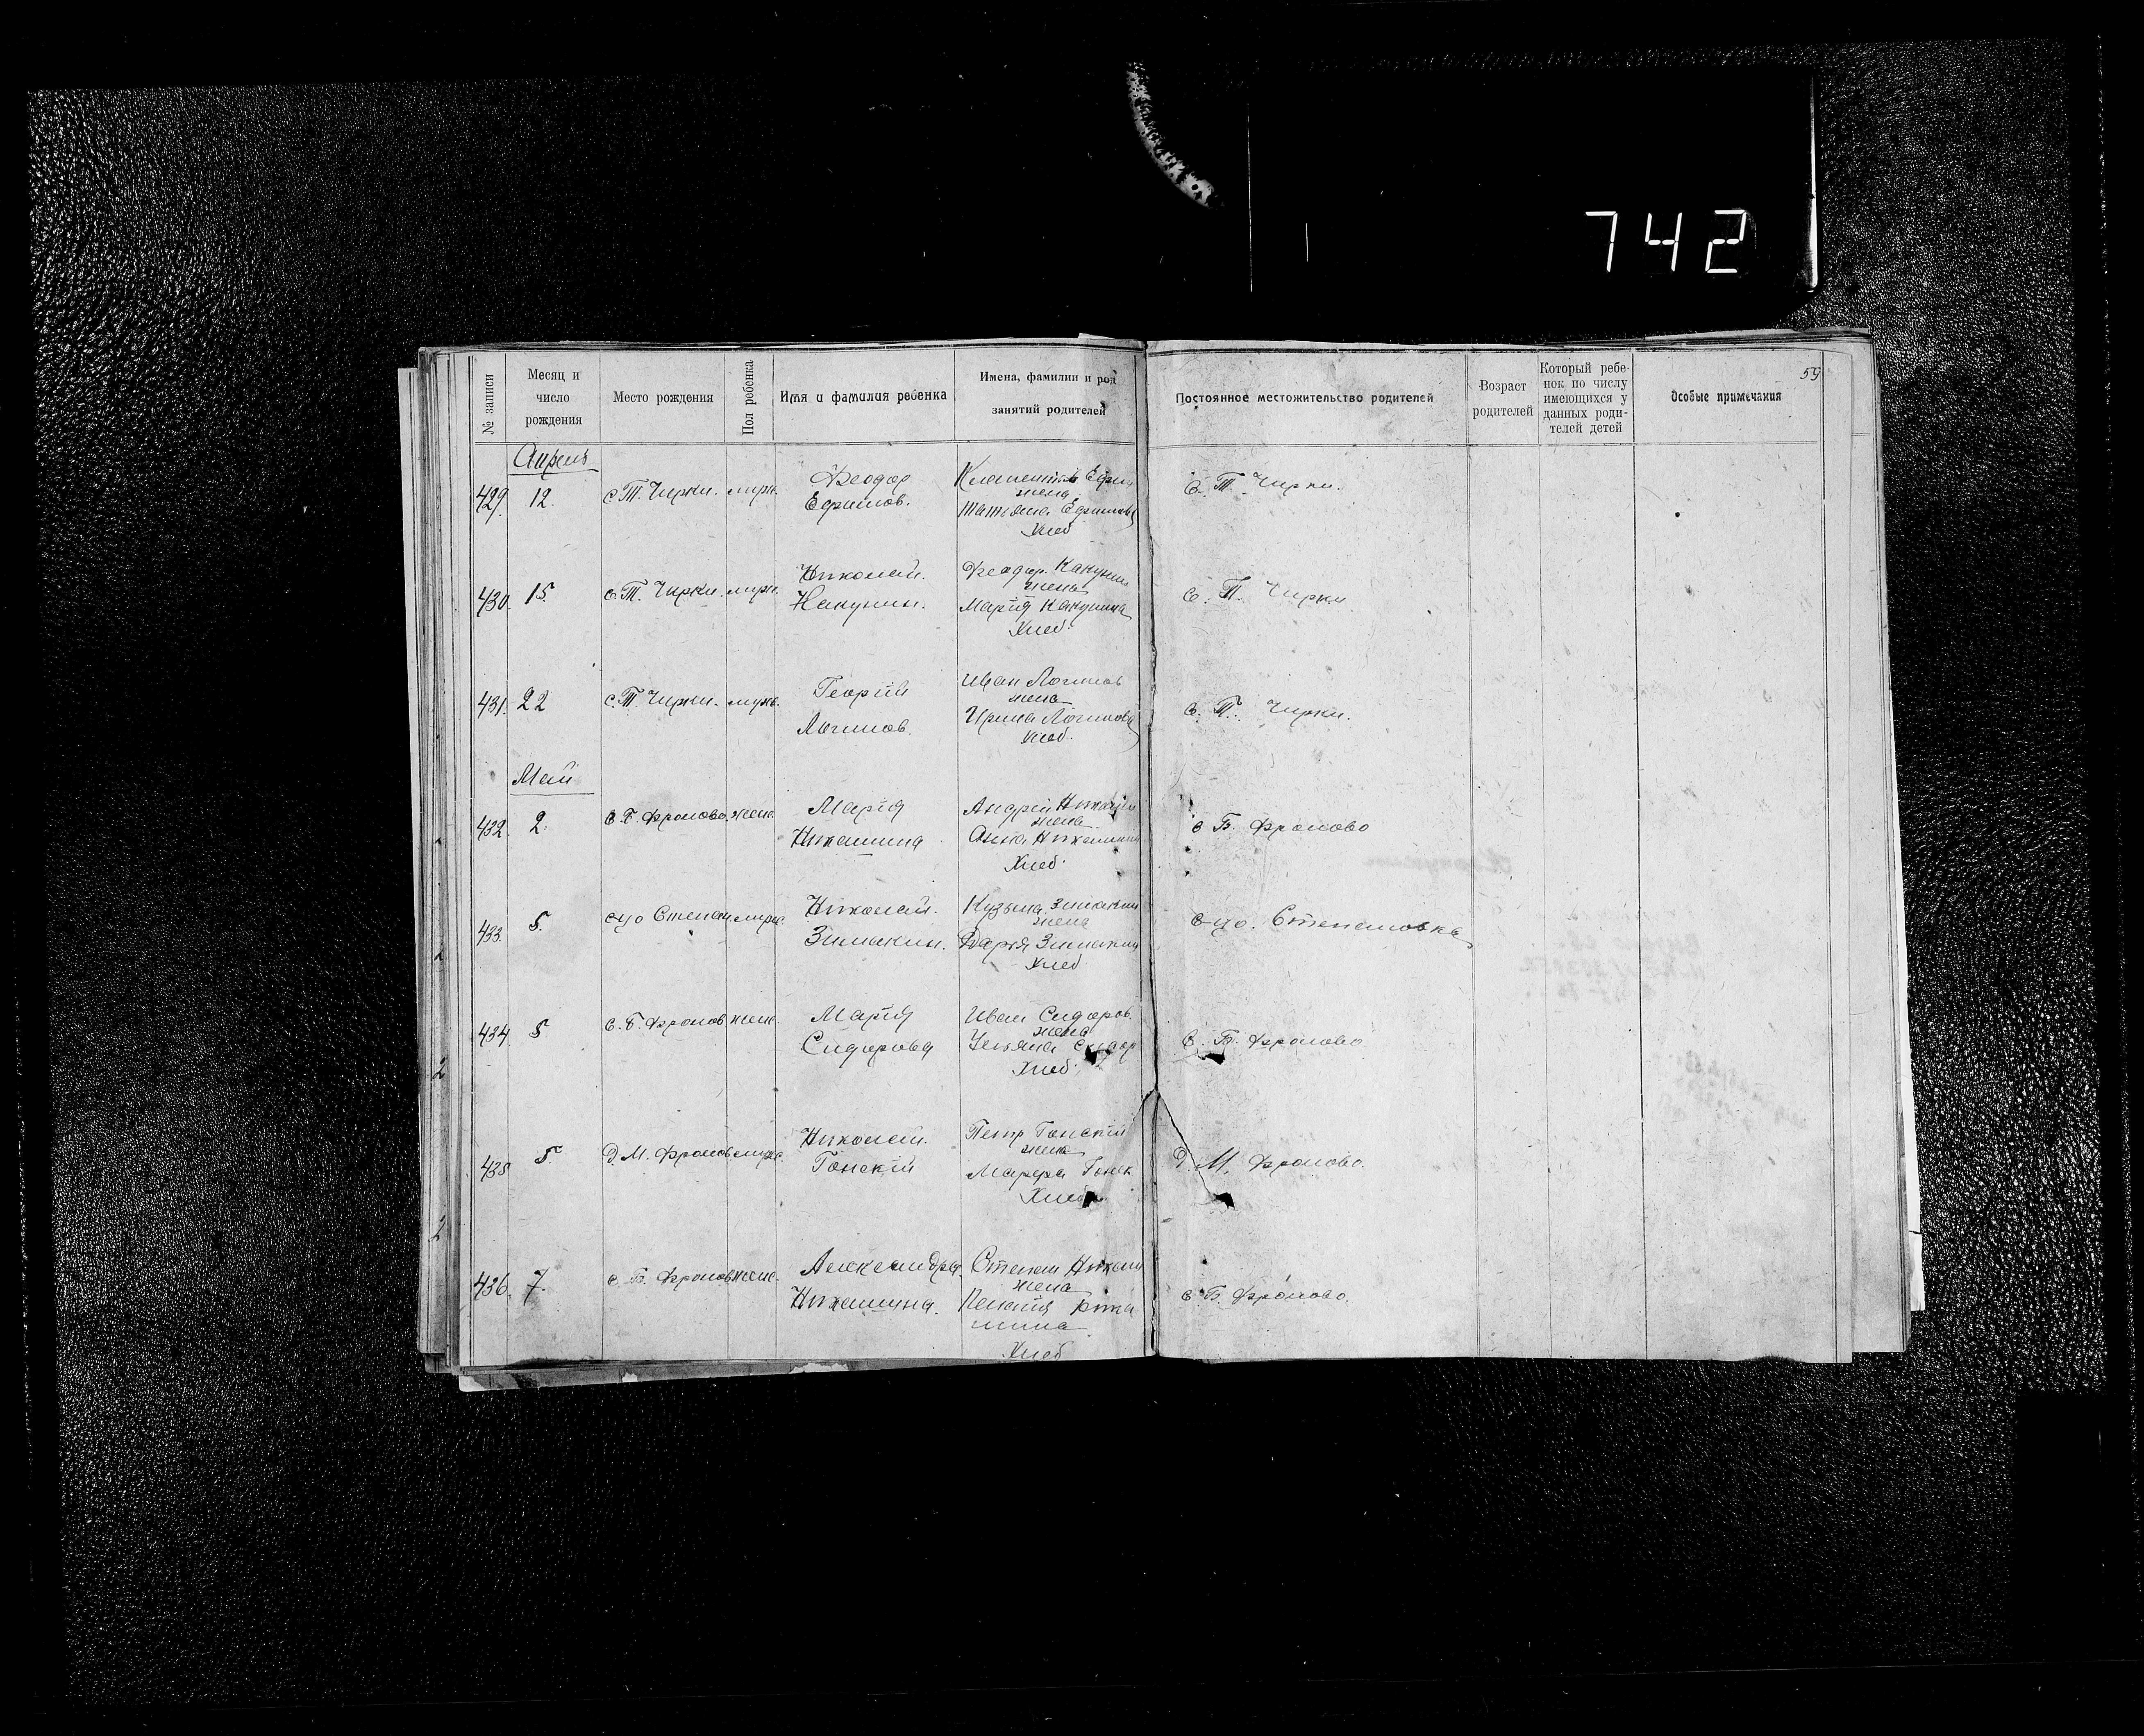 742
59
№ записи
Месяц и
число
рождения
Место рождения
Пол ребенка
Имя и фамилия ребенка
Имена, фамилии и род
занятий родителей
Постоянное местожительство родителей
Возраст
родителей
Который ребе-
нок по числу
имеющихся у
данных роди-
телей детей
Особые примечания
Апрель
429. 12. с Т. Чирки. муж.
Феодор
Ефимов.
Ефим
жена
Татьяна Ефимова
Хлеб
С. Т. Чирки.
430. 15. с. Т. Чирки. муж.
Николай.
Какунин.
Феодор. Какунин
жена
Марія Какунина
Хлеб.
С. Т. Чирки
431. 22 с. Т Чирки. муж.
Георгій
Логинов.
Иван Логинов
жена
Ирина Логинова
Хлеб.
С. Т. Чирки.
Май
432. 2. с Б. Фролово. жен.
Марія
Никашина
Андрей Никашин
жена
Анна Никашина
Хлеб.
с Б. Фролово
433. 5. с-цо Степан. муж.
Николай.
Зимакин.
Кузьма Зимакин
жена
Дарья Зимакин
Хлеб
с-цо. Степановка
434. 5 с. Б. Фролов жен.
Марія
Сидорова
Иван Сидоров.
жена
Ульяна Сидор
Хлеб.
С. Б. Фролово
435 5 Д. М. Фролов муж.
Николай.
Гонскій
Петр Гонскій
жена
Марфа Гонск
Хлеб.
Д. М. Фролово.
436. 7. с. Б. Фролов жен.
Александра.
Никашина.
Степан Никаш
жена
Хлеб
с Б. Фролово.